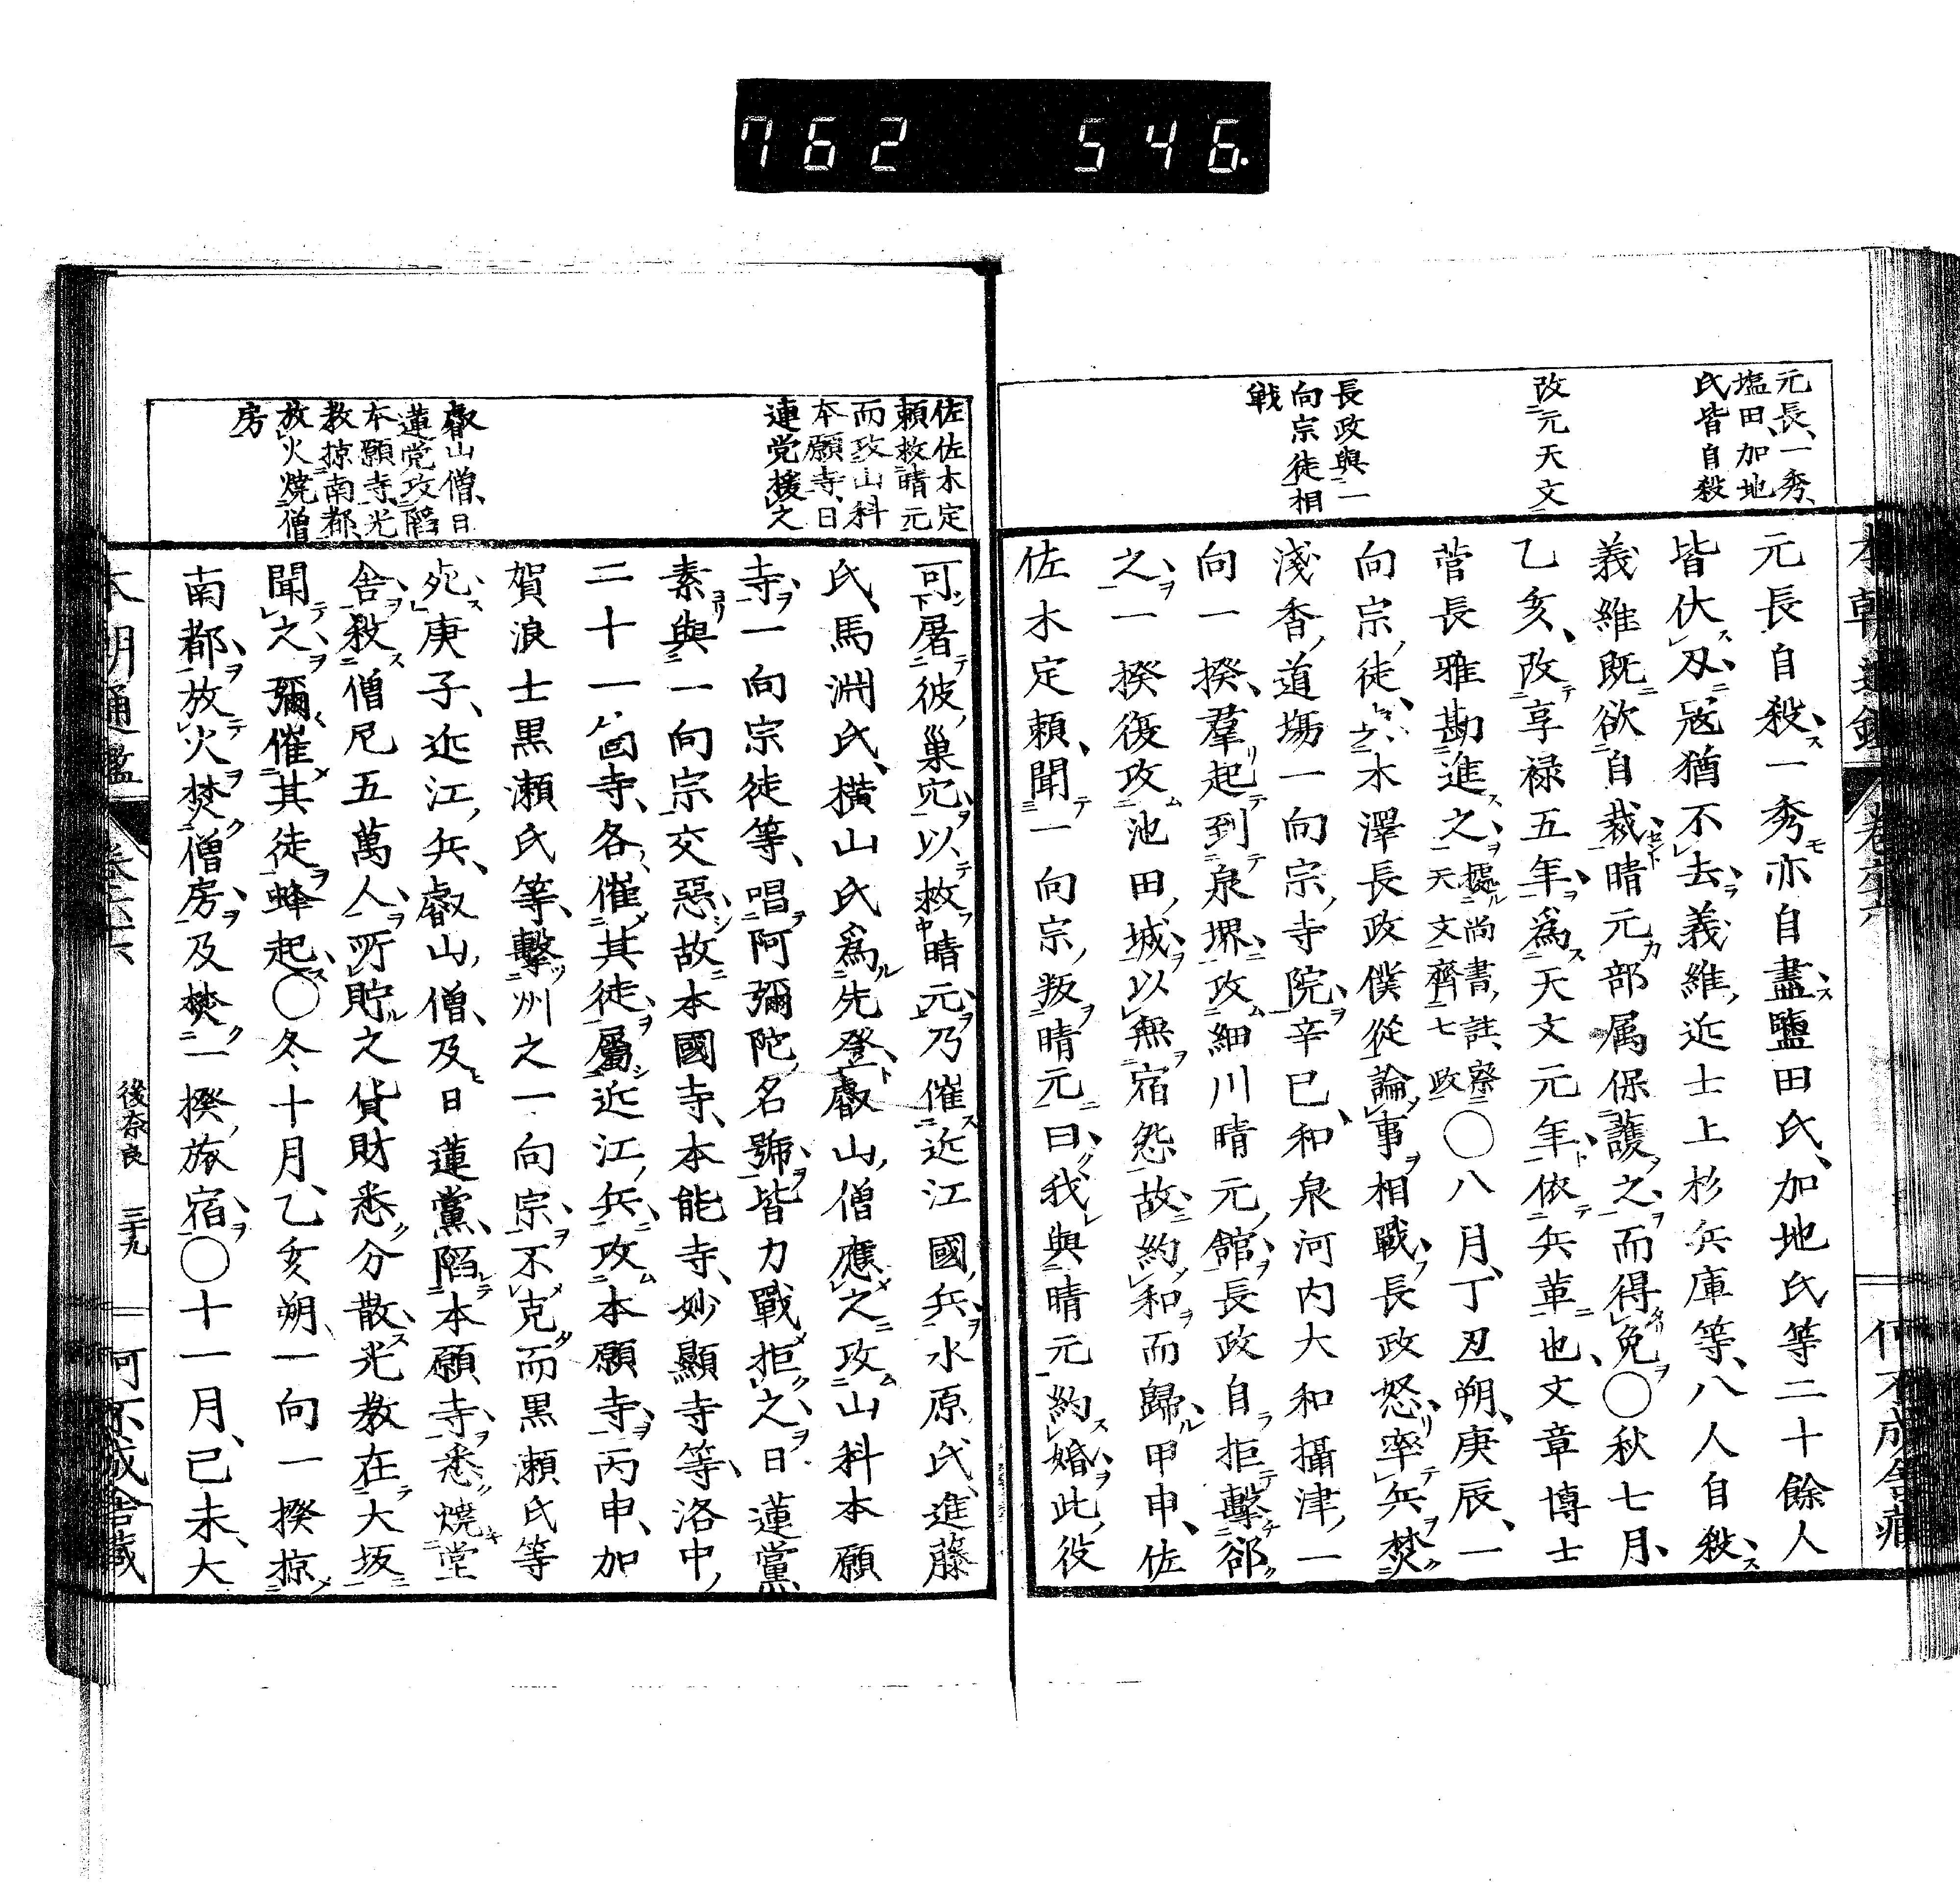 762 546.
元長、一秀、
塩田、加地
氏皆自殺
改元天文
長政與一
向宗徒相
戦
元長自殺一秀亦自盡鹽田氏、加地氏等二十餘人
皆伏刄寇猶不去義維近士上杉兵庫等、八人自殺
義維既欲自裁晴元部属保護之而得免〇秋七月、
乙亥、改享禄五年爲天文元年依兵革也、文章博士
菅長雅勘進之據尚書註、察天文齊七政〇八月、丁丑朔、庚辰、一
向宗徒、與木澤長政僕從論事相戰長政怒率兵焚
淺香道塲一向宗寺院辛巳、和泉河内大和攝津一
向一揆、羣起到泉堺攻細川晴元館長政自拒擊郤
之一揆復攻池田城以無宿怨故約和而歸甲申、佐
佐木定頼、聞一向宗叛晴元曰我與晴元約婚此役
佐佐木定
頼救晴元
而攻山科
本願寺、日
連党援之
叡山僧、日
蓮党攻陷
本願寺光
教掠南都、
放火焼僧
房
可屠彼巢穴以救晴元乃催近江國兵水原氏、進藤
氏、馬淵氏、横山氏爲先登叡山僧應之攻山科本願
寺一向宗徒等、唱阿彌陀名號皆力戰拒之日蓮黨
素與一向宗交惡故本國寺、本能寺、妙顯寺等洛中
二十一箇寺、各催其徒屬近江兵攻本願寺丙申、加
賀浪士黒瀬氏等、擊州之一向宗不克而黒瀬氏等
死庚子、近江兵、叡山僧、及日蓮黨、陷本願寺悉燒堂
舎殺僧尼五萬人所貯之貨財悉分散光教在大坂
聞之彌催其徒蜂起〇冬十月、乙亥朔、一向一揆掠
南都放火焚僧房及焚一揆旅宿〇十一月、己未、大
後奈良 三十九